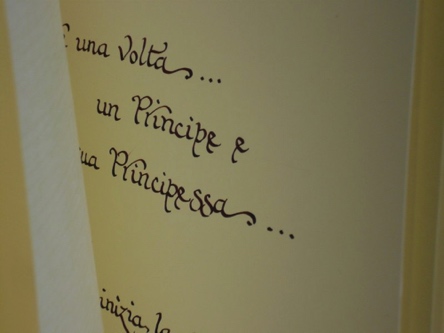 una volta...
un Principe e
Principessa...
inizia la